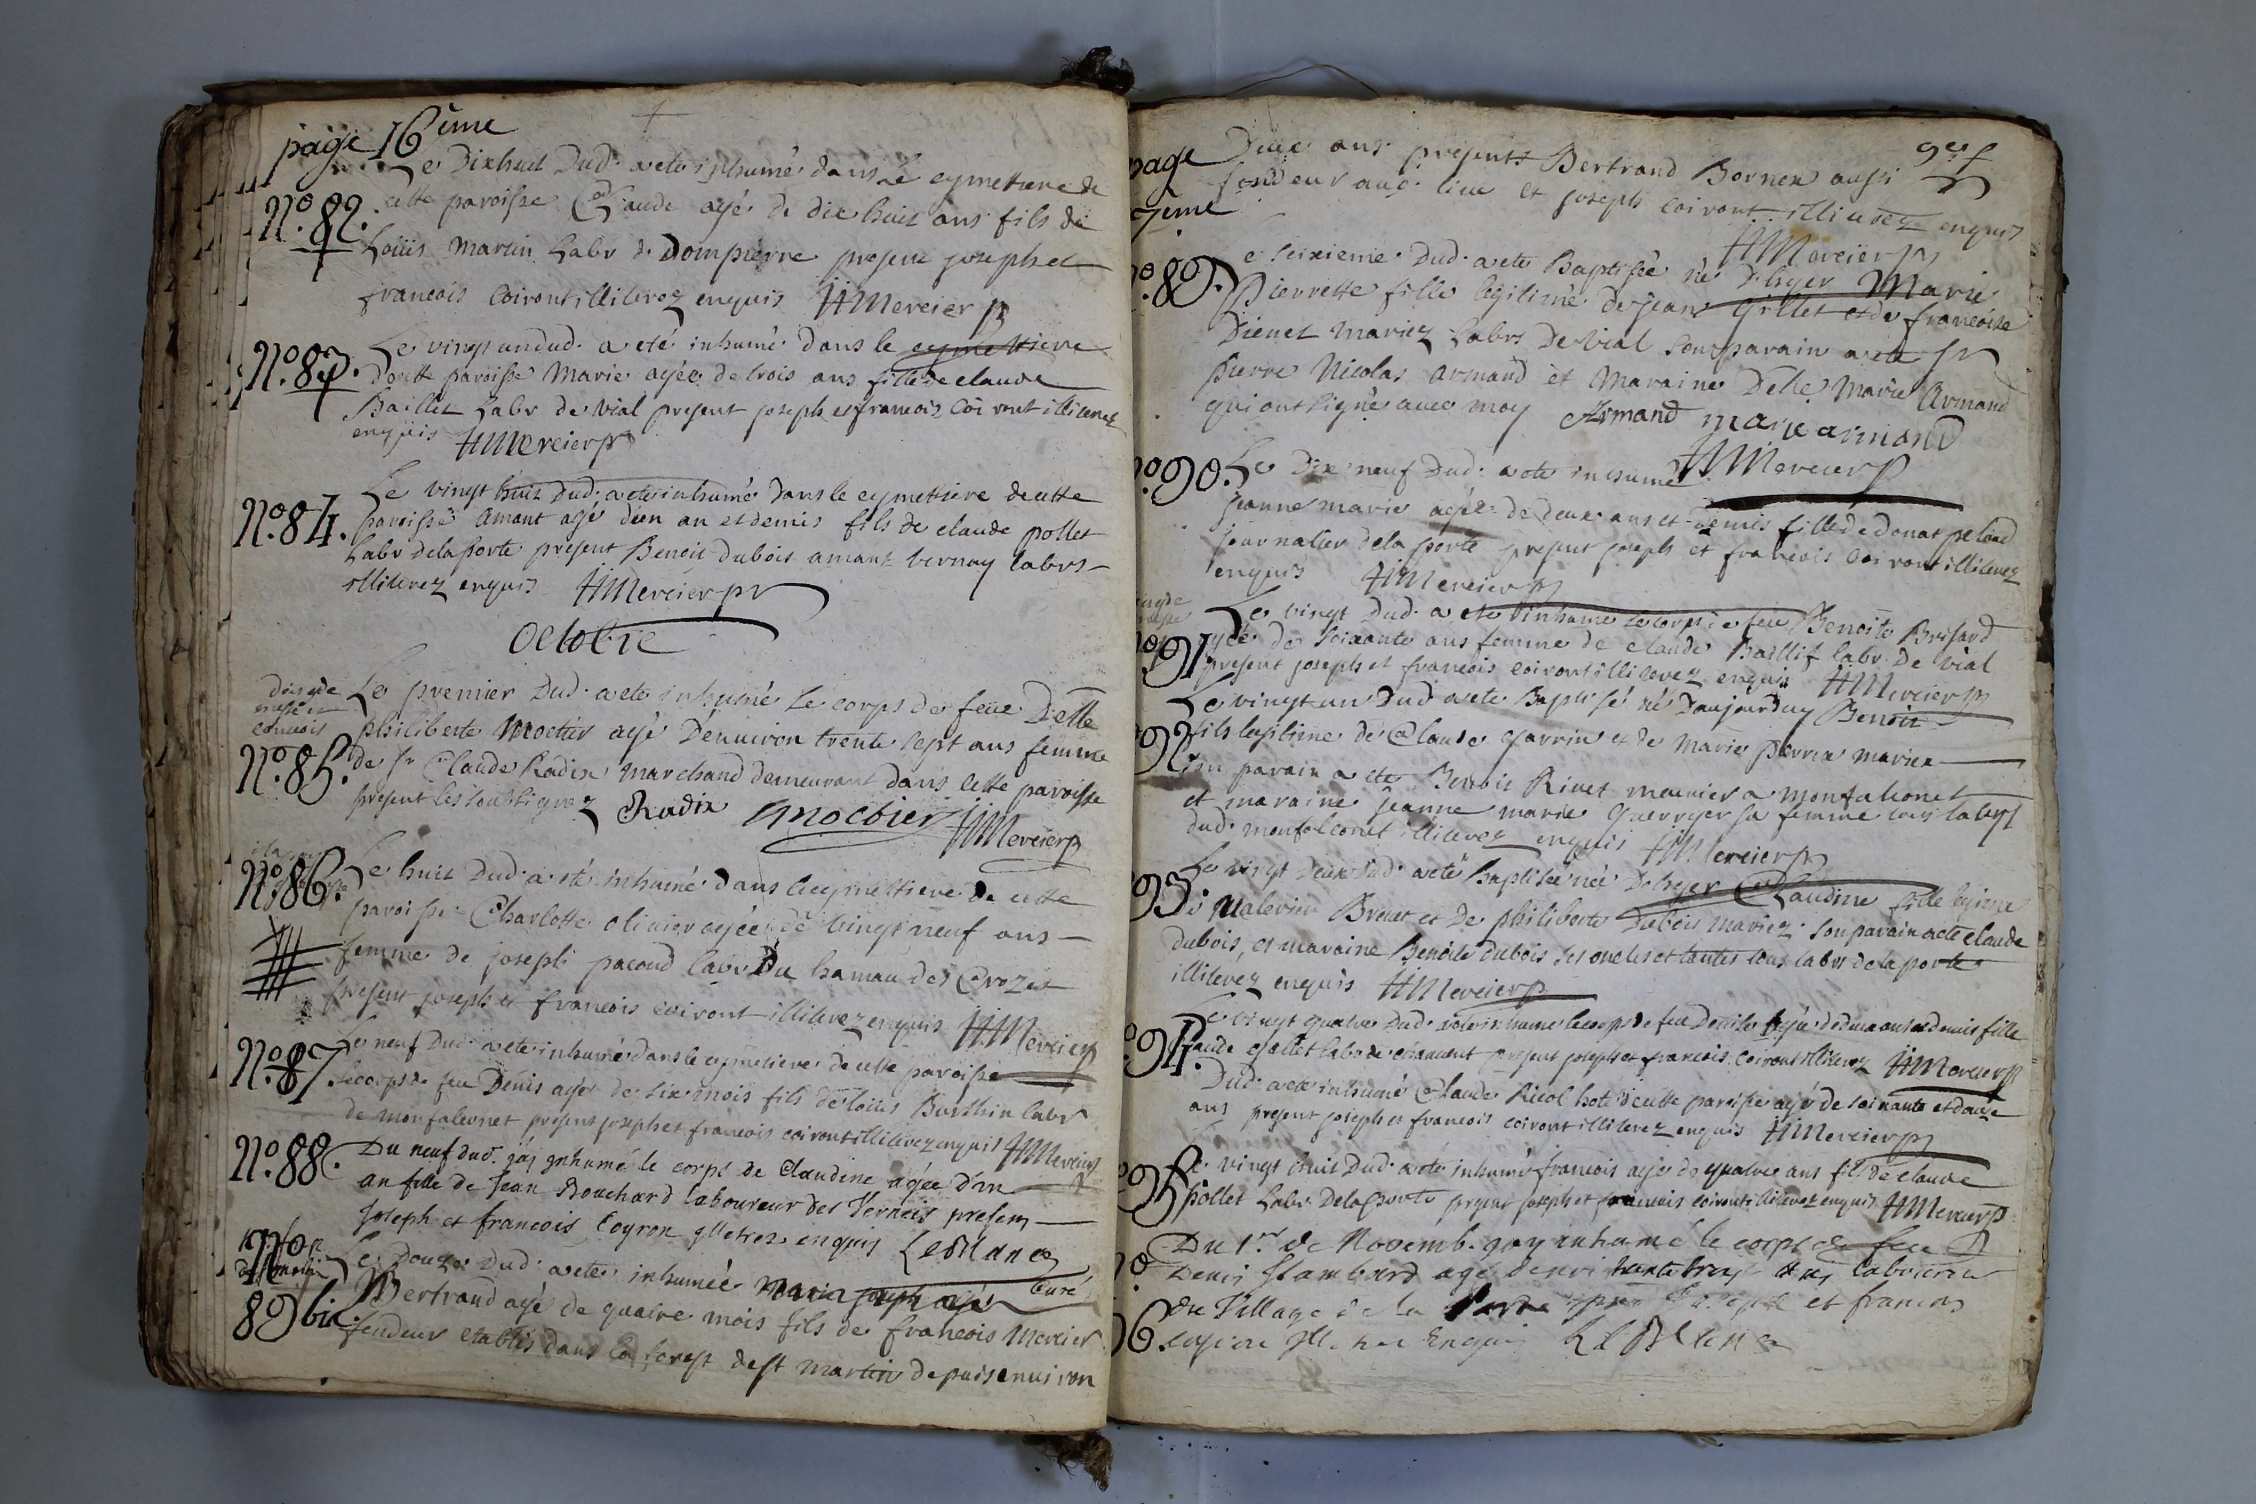 page 16ème
Le Dixhuit Dud. a ete inhumé dans Le cymettiere de
N.º 82. cette paroisse Claude agé de dix huit ans fils de
Loüis Martin Labr de Dompierre present joseph et
francois Coiront illiterez enquis HMercier pr
N.º 83. Le vingt un dud. a eté inhumé dans le cymettiere
de cette paroisse Marie agée de trois ans fille de claude
Baillet Labr de vial present joseph et francois Coiront illiterez
enquis HMercier pr
Le vingt huit Dud. a ete inhumé dans le cymettiere de cette
N.º 84. paroisse Amant agé d'un an et demis fils de claude pollet
Labr de la porte present Benoit dubois amant vernay labrs
illiterez enquis HMercier pr
Octobre
Le premier Dud. a ete inhumé Le corps de feue Delle
philiberte Mochier agé D'enuiron trente sept ans femme
N.º 85. de sr Claude Radix Marchand demeurant dans cette paroisse
present les soussignez CRadix Mochier HMercier pr
N.º 86. Le huit Dud. a eté inhumé dans le cymettiere de cette
paroisse Charlotte oliuier agée de vingt neuf ans
femme de joseph pacoud labr Du hamau des Crozet
present joseph et francois coiront illiterez enquis HMercier pr
N.º 87 Le neuf Dud. a ete inhumé dans le cymetiere de cette paroisse
le corps de feu Denis agé de six mois fils de loüis Burthin labr
de monfalconet present joseph et francois coiront illiterez enquis HMercier
N.º 88. Du neuf dud. j'ay inhumé le corps de Claudine agée d'un
an fille de Jean Bouchard laboureur des Verneis presens
Joseph et francois Coyron illetrez enquis LeBlanc
curé
N.º Le Douze Dud. a ete inhumée Marie joseph agé
89 bis. Bertrand agé de quatre mois fils de francois Mercier
fendeur etablis dans la forest de st martin depuis enuiron
page Deux ans presents Bertrand Bornex aussi
7ème fendeur aud. lieu et joseph coiront illiterez enquis
HMercier pr
N.º 89. Le seixieme Dud. a ete Baptisée née D'hyer Marie
Pierrette fille legitime de jean Gillet et de francoise
Dienet mariez Labrs De vial son parain a ete sr
Pierre Nicolas Armand et Maraine Delle Marie Armand
qui ont signé auec moy Armand marie armand
HMercier pr
N.º 90. Le Dix neuf Dud. a ete inhumé
jeanne marie agée de deux ans et demis fille de donat peloud
journalier de la porte present joseph et francois coiront illiterez
enquis HMercier pr
Le vingt Dud. a ete inhumé le corps de feue Benoite Brisard
N.º 91 agée de soixante ans femme de claude Baillif labr De vial
present joseph et francois coiront illiterez enquis HMercier pr
Le vingt un Dud a ete Baptisé né D'aujourduy Benoit
92 fils legitime de Claude Garrin et de Marie perrex mariez
son parain a ete Benoit Riuet meunier a monfalconet
et maraine jeanne marie Guerryer sa femme
dud. monfalconet illiterez enquis HMercier pr
93. Le vingt deux Dud. a ete baptisée née D'hyer Claudine fille legitime
de Valerien Breuet et de philiberte Dubois mariez son parain a ete claude
dubois, et maraine Benoite dubois ses oncles et tantes tous labrs de la porte
illiterez enquis HMercier pr
94. Le vingt quatre Dud. a ete inhumé le corps de feu Denise agée de deux ans et demis fille
present joseph et francois coiront illiterez HMercier pr
Dud. a ete inhumé Claude Ricol hote de cette paroisse agé de soixante et douze
ans present joseph et francois coiront illiterez enquis HMercier pr
95 Le vingt huit Dud. a ete inhumé francois agé de quatre ans fils de claude
pollet Labr. De la porte present joseph et francois coiront illiterez enquis HMercier pr
Du 1.er de Novemb. j'ay inhumé le corps de feu
Denis flambard agé d'envi trante trois ans laboureur
96. du Village de la Porte et francois
enquis LeBlanc